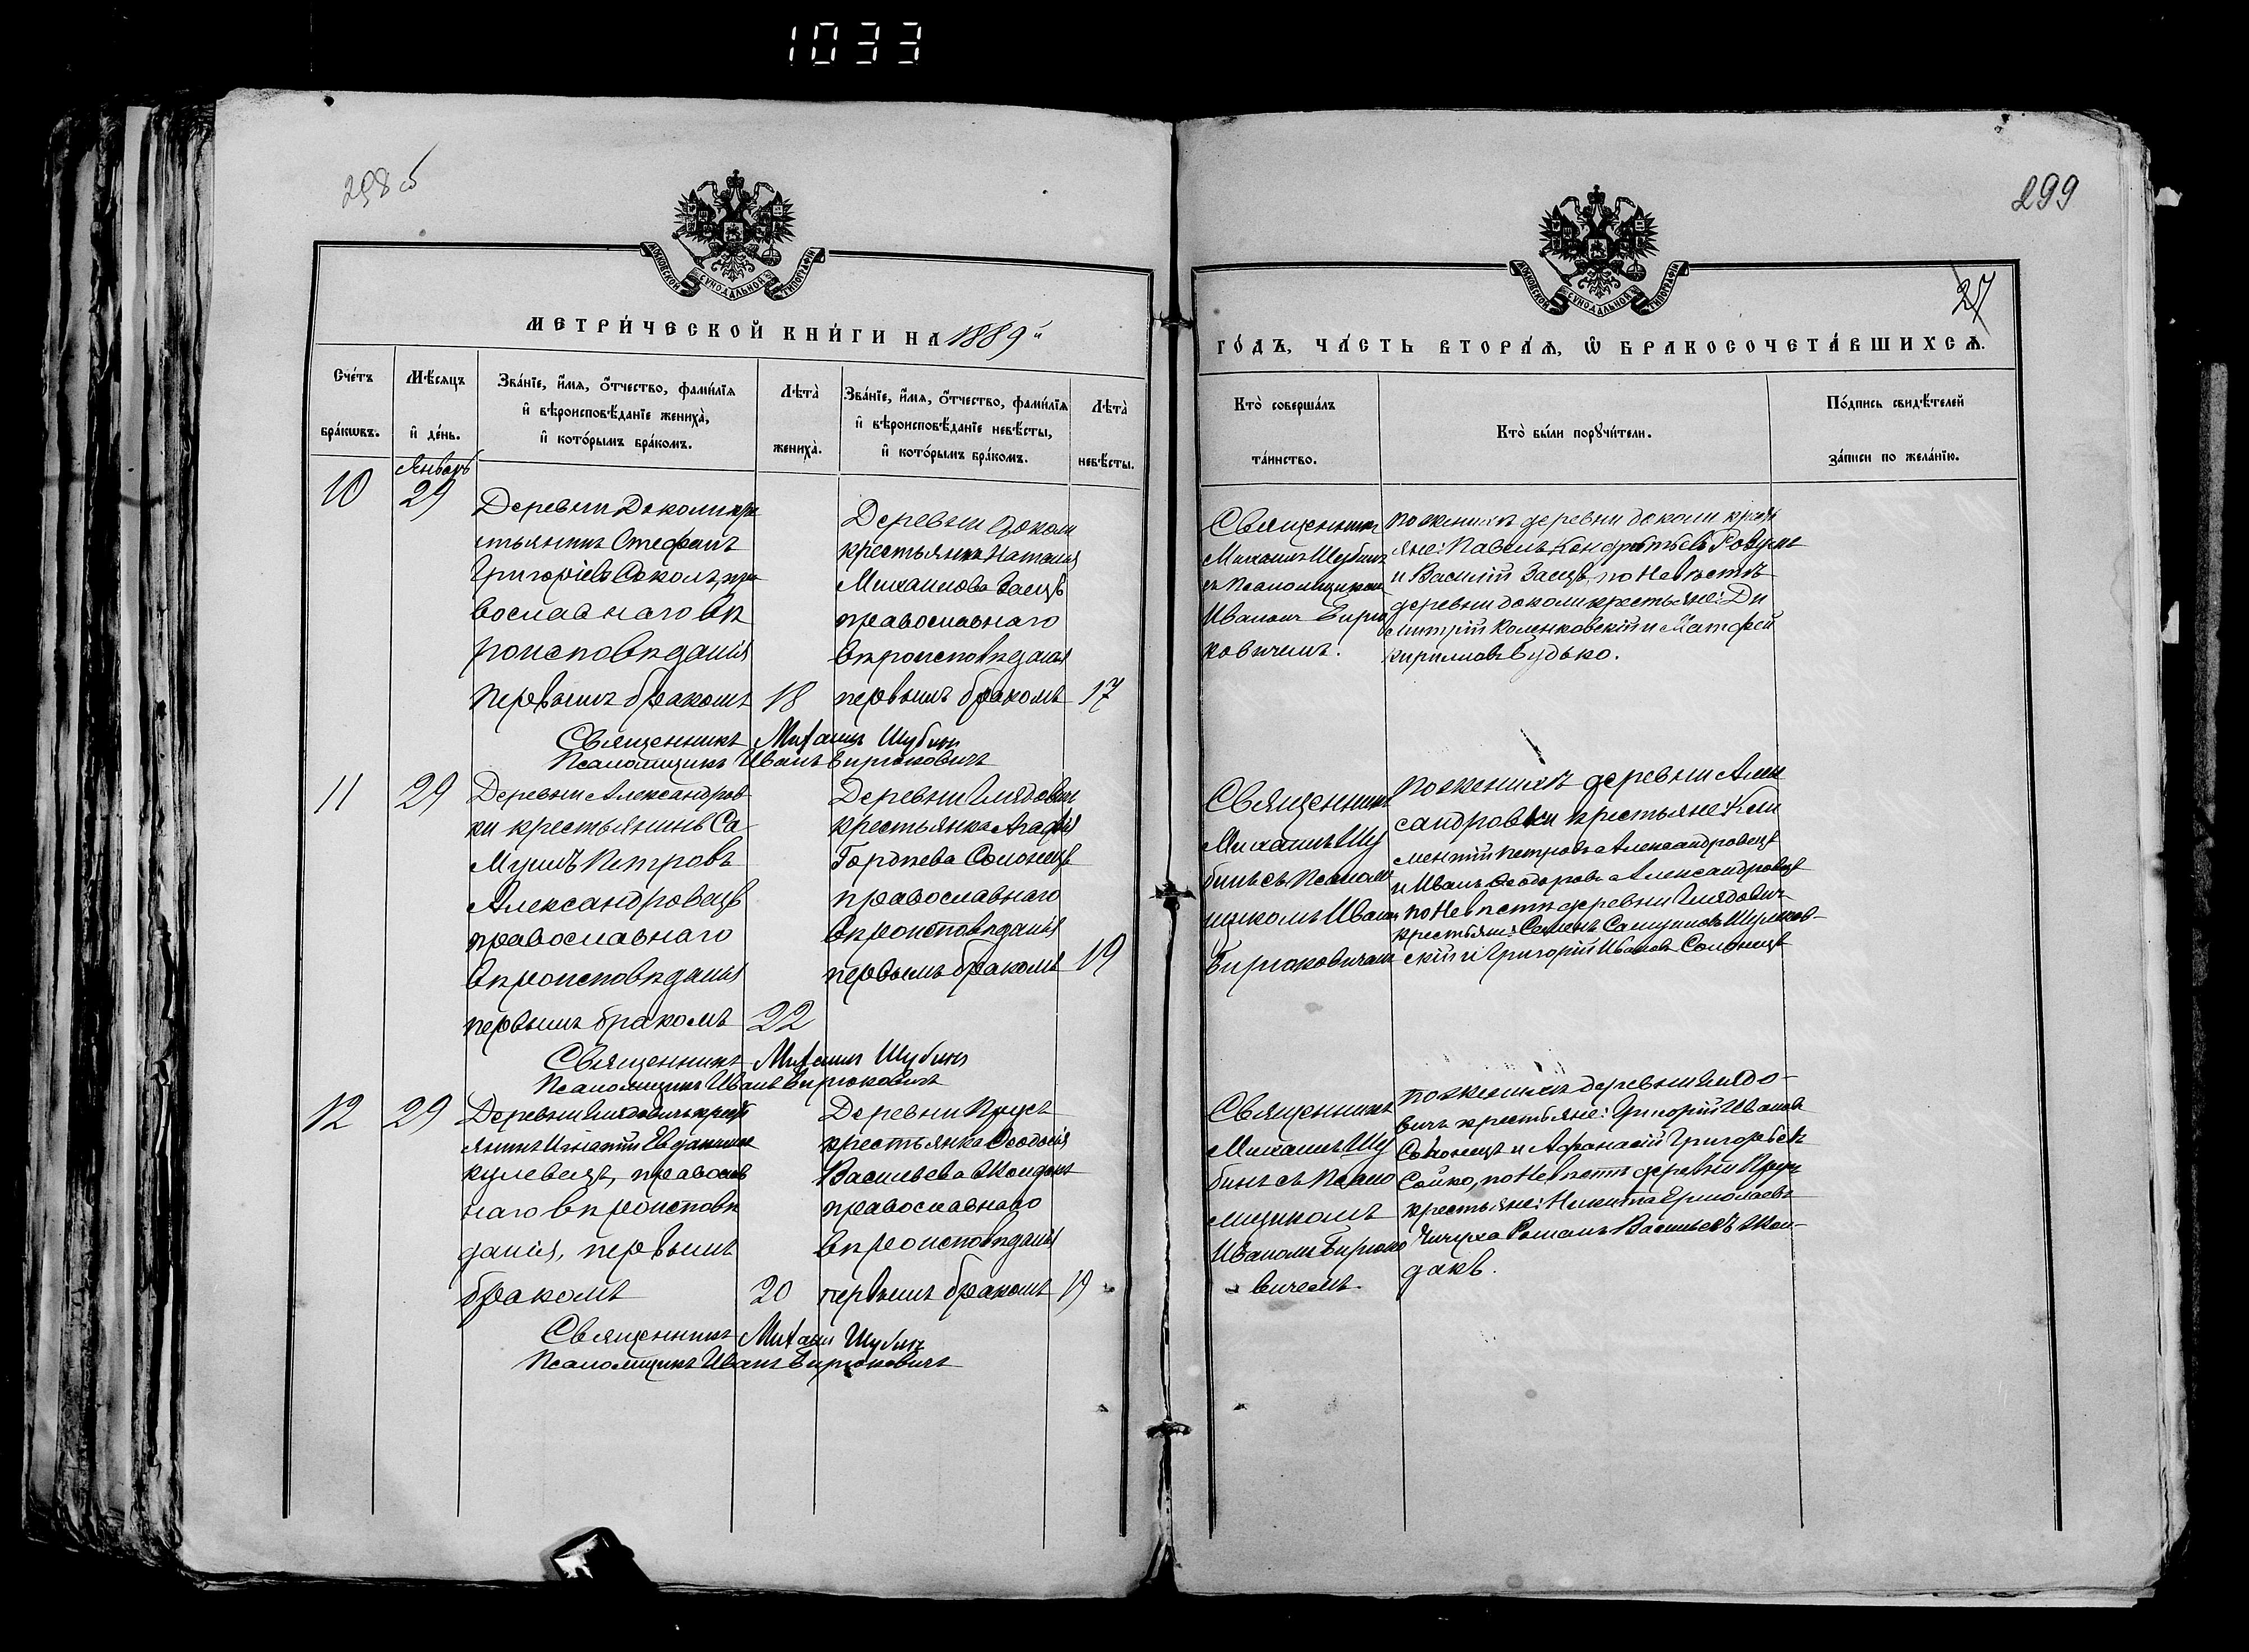 1033
298 об
299
27
МОСКОВСКОЙ СѴНОДАЛЬНОЙ ТИПОГРАФІИ
МОСКОВСКОЙ СѴНОДАЛЬНОЙ ТИПОГРАФІИ
МЕТРИ́ЧЕСКОЙ КНИ́ГИ НА 1889й
Сче́тъ бра́кѡвъ.
Мѣ́сяцъ и҆ де́нь.
Зва́нїе, и҆́мѧ, ѻ҆́тчество, фами́лїѧ
и҆ вѣроисповѣ́данїе жениха̀,
и҆ кото́рымъ бра́комъ.
Лѣта̀ жениха̀.
Зва́нїе, и҆́мѧ, ѻ҆́тчество, фами́лїѧ
и҆ вѣроисповѣ́данїе невѣ́сты,
и҆ кото́рымъ бра́комъ.
Лѣта̀ невѣ́сты.
Январь
10
29
Деревни Доколи кре
стьянинъ Стефанъ
Григоріевъ Соколъ, пра
вославнаго вѣ
роисповѣданія
первымъ бракомъ
18
Деревни Доколи
крестьянка Наталія
Михаилова Заецъ
православнаго
вѣроисповѣданія
первымъ бракомъ
17
Священникъ Михаилъ Шубинъ
Псаломщикъ Иванъ Бирюковичъ
11
29
Деревни Александров
ки крестьянинъ Са
муилъ Петровъ
Александровецъ
православнаго
вѣроисповѣданія
первымъ бракомъ
22
Деревни Глядовичъ
крестьянка Агафія
Гордѣева Солонецъ
православнаго
вѣроисповѣданія
первымъ бракомъ
19
Священникъ Михаилъ Шубинъ
Псаломщикъ Иванъ Бирюковичъ
12
29
Деревни Глядовичъ крест
янинъ Игнатій Евдокимовъ
Кулевецъ, православ
наго вѣроисповѣ
данія, первымъ
бракомъ
20
Деревни Прусъ
крестьянка Ѳеодосія
Васильева Жолдакъ
православнаго
вѣроисповѣданія
первымъ бракомъ
19
Священникъ Михаилъ Шубинъ
Псаломщикъ Иванъ Бирюковичъ
ГО́ДЪ, ЧА́СТЬ ВТОРА́Ѧ, Ѡ҆ БРАКОСОЧЕТА́ВШИХСѦ.
Кто̀ соверша́лъ
та́инство.
Кто̀ бы́ли порꙋчи́тели.
По́дпись свидѣ́телей
за́писи по жела́нїю.
Священникъ
Михаилъ Шубинъ
съ Псаломщикомъ
Иваномъ Бирю
ковичемъ.
По женихѣ деревни Доколи крестья
яне: Павелъ Кондратьевъ
и Василій Заецъ, по Невѣстѣ
деревни Доколи крестьяне: Ди
митрій Коленковскій и Матфей
Кирилловъ Будько.
Священникъ
Михаилъ Шу
бинъ съ Псалом
щикомъ Иваномъ
Бирюковичемъ
По женихѣ деревни Алек
сандровки крестьяне: Кли
ментій Петровъ Александровецъ
и Иванъ Ѳеодоровъ Александровецъ
по Невѣстѣ деревни Глядовичъ
крестьяне: Семенъ Самуиловъ
скій и Григорій Ивановъ Солонецъ
Священникъ
Михаилъ Шу
бинъ съ Псало
мщикомъ
Иваномъ Бирюко
вичемъ.
По женихѣ деревни Глядо-
вичъ крестьяне: Григорій Ивановъ
Солонецъ и Аѳанасій Григорьевъ
Сойко, по Невѣстѣ деревни Прусъ
крестьяне: Никита Ермолаевъ
Чичуха Романъ Васильевъ Жол-
дакъ.